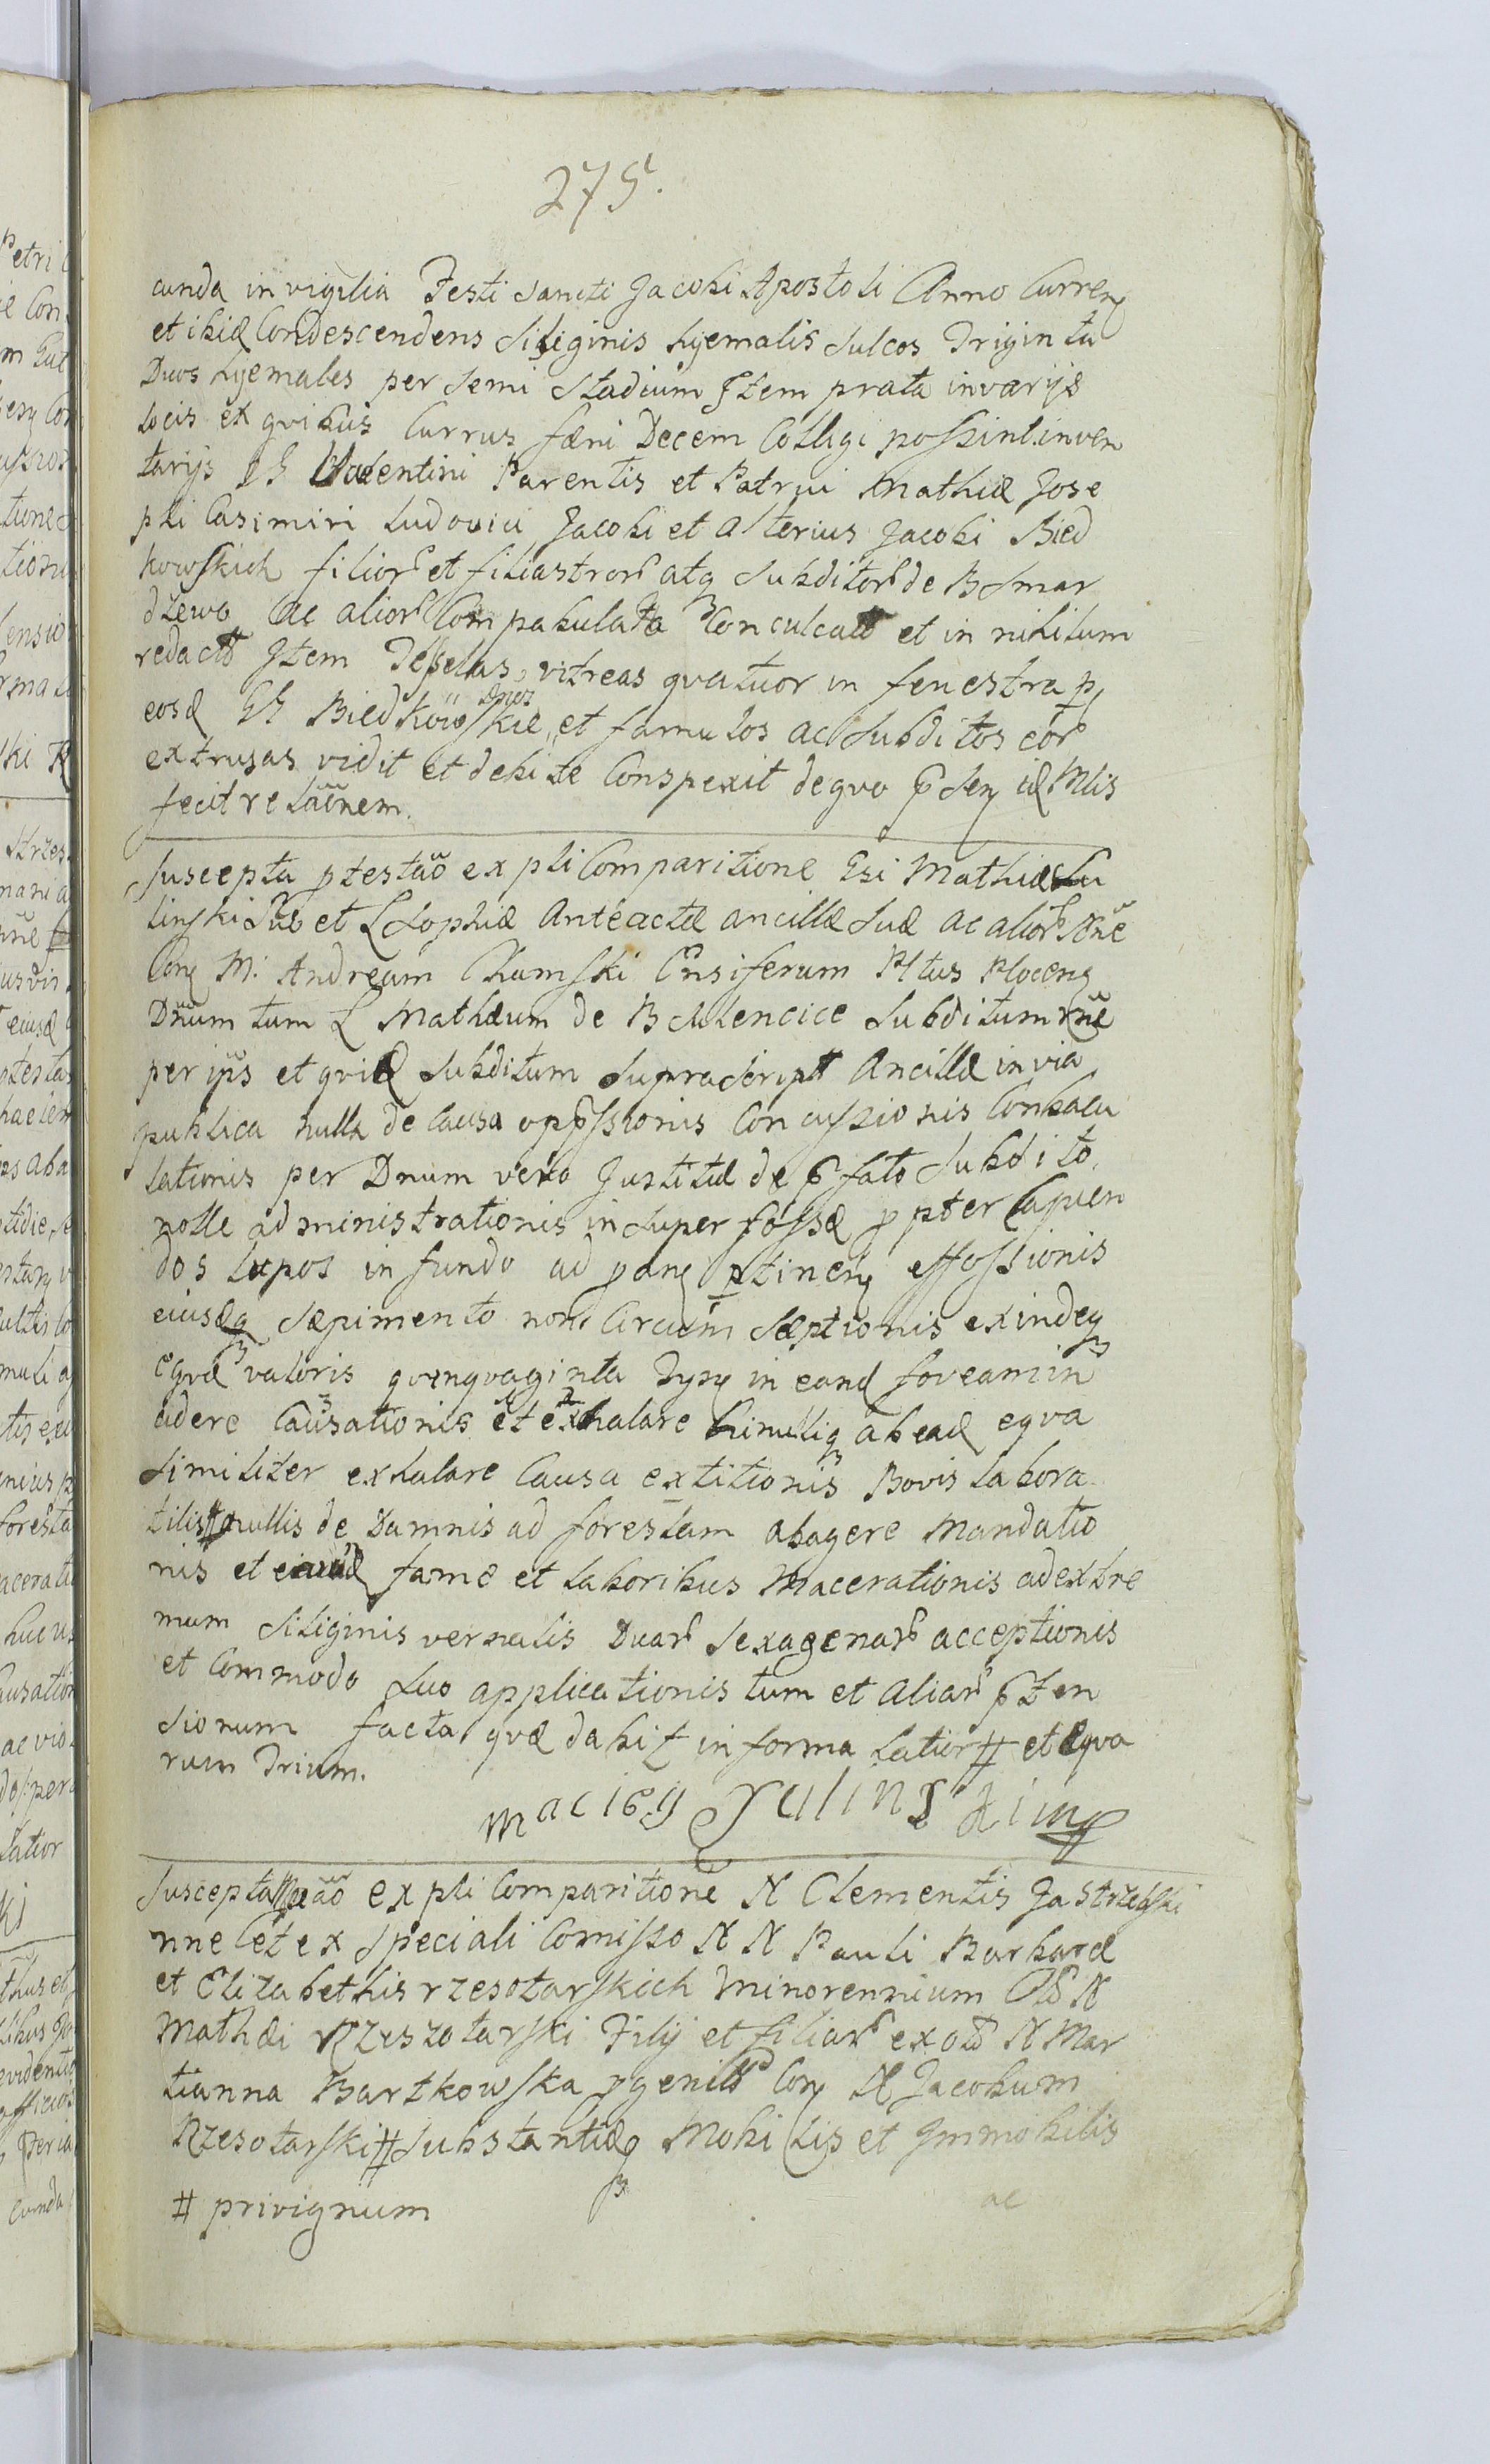 275.
cunda in vigilia Festi Sancti Jacobi Apostoli Anno Curren
et ibid Condescendens Siliginis hyemalis Sulcos Triginta
Duos hyemales per Semi Stadium Item prata in varijs
locis ex qvibus Currus fæni Decem Colligi possint inven
tarijs GG Valentini Parentis et Patrui Mathiæ Jose
phi Casimiri Ludovici Jacobi et Alterius Jacobi Bied
kowskich filior et filiastror atq Subditor de B Smar
dzewo ac alior Compabulata Conculcata et in nihilum
redacta Item Tesselas vitreas qvatuor in fenestra p
eosd GG Biedkowskie Dnos et famulos ac Subditos eor
extrusas vidit et debite Conspexit de qvo pnsen id Mlis
fecit relaõnem.
Suscepta ptestaõ ex pli Comparitione Gsi Mathiæ
linski Suo et L Sophiæ Anteactæ ancillæ Suæ ac alior nne
Con M. Andream Chamski Ensiferum Pltus Plocen
Dnum tum L Mathæum de B Milencice Subditum
per ips et qvid Subditum Supra Script Ancillæ in via
publica nulla de Causa oppssionis Concussionis Conbacu
lationis per Dnum vero Justitiæ de pfato Subdito
nolle administrationis in Super fossæ ppter Capien
dos Lupos in fundo ad ptinen effossionis
eiusdq Sæpimento non Circum Sæptionis exindeq
eqvæ valoris qvinqvaginta Tyn in eand foveam in
cidere Causationis et exhalare hinulliq ab ead eqva
Similiter exhalare Causa extitionis Bovis labora
tilis nullis de Damnis ad forestam abagere Mandatio
nis et fame et laboribus Macerationis ad extre
mum Siliginis vernalis Duar Sexagenar acceptionis
et Commodo Suo applicationis tum et Aliar pten
sionum facta qvæ dabit in forma latior # et Eqva
rum Trium.
Maciey Sulinski mp
Suscepta ex pli Comparitione N Clementis Jastrzebski
nne et ex Speciali Comisso N N Pauli Barbaræ
et Elizabethis rzesotarskich Minorennium N
Mathæi Rzeszotarski Filij et filiar ex N Mar
tianna Bartkowska pgenit Con N Jacobum
Rzesotarski # Substantiæq Mobilis et Immobilis
# privignum
ac